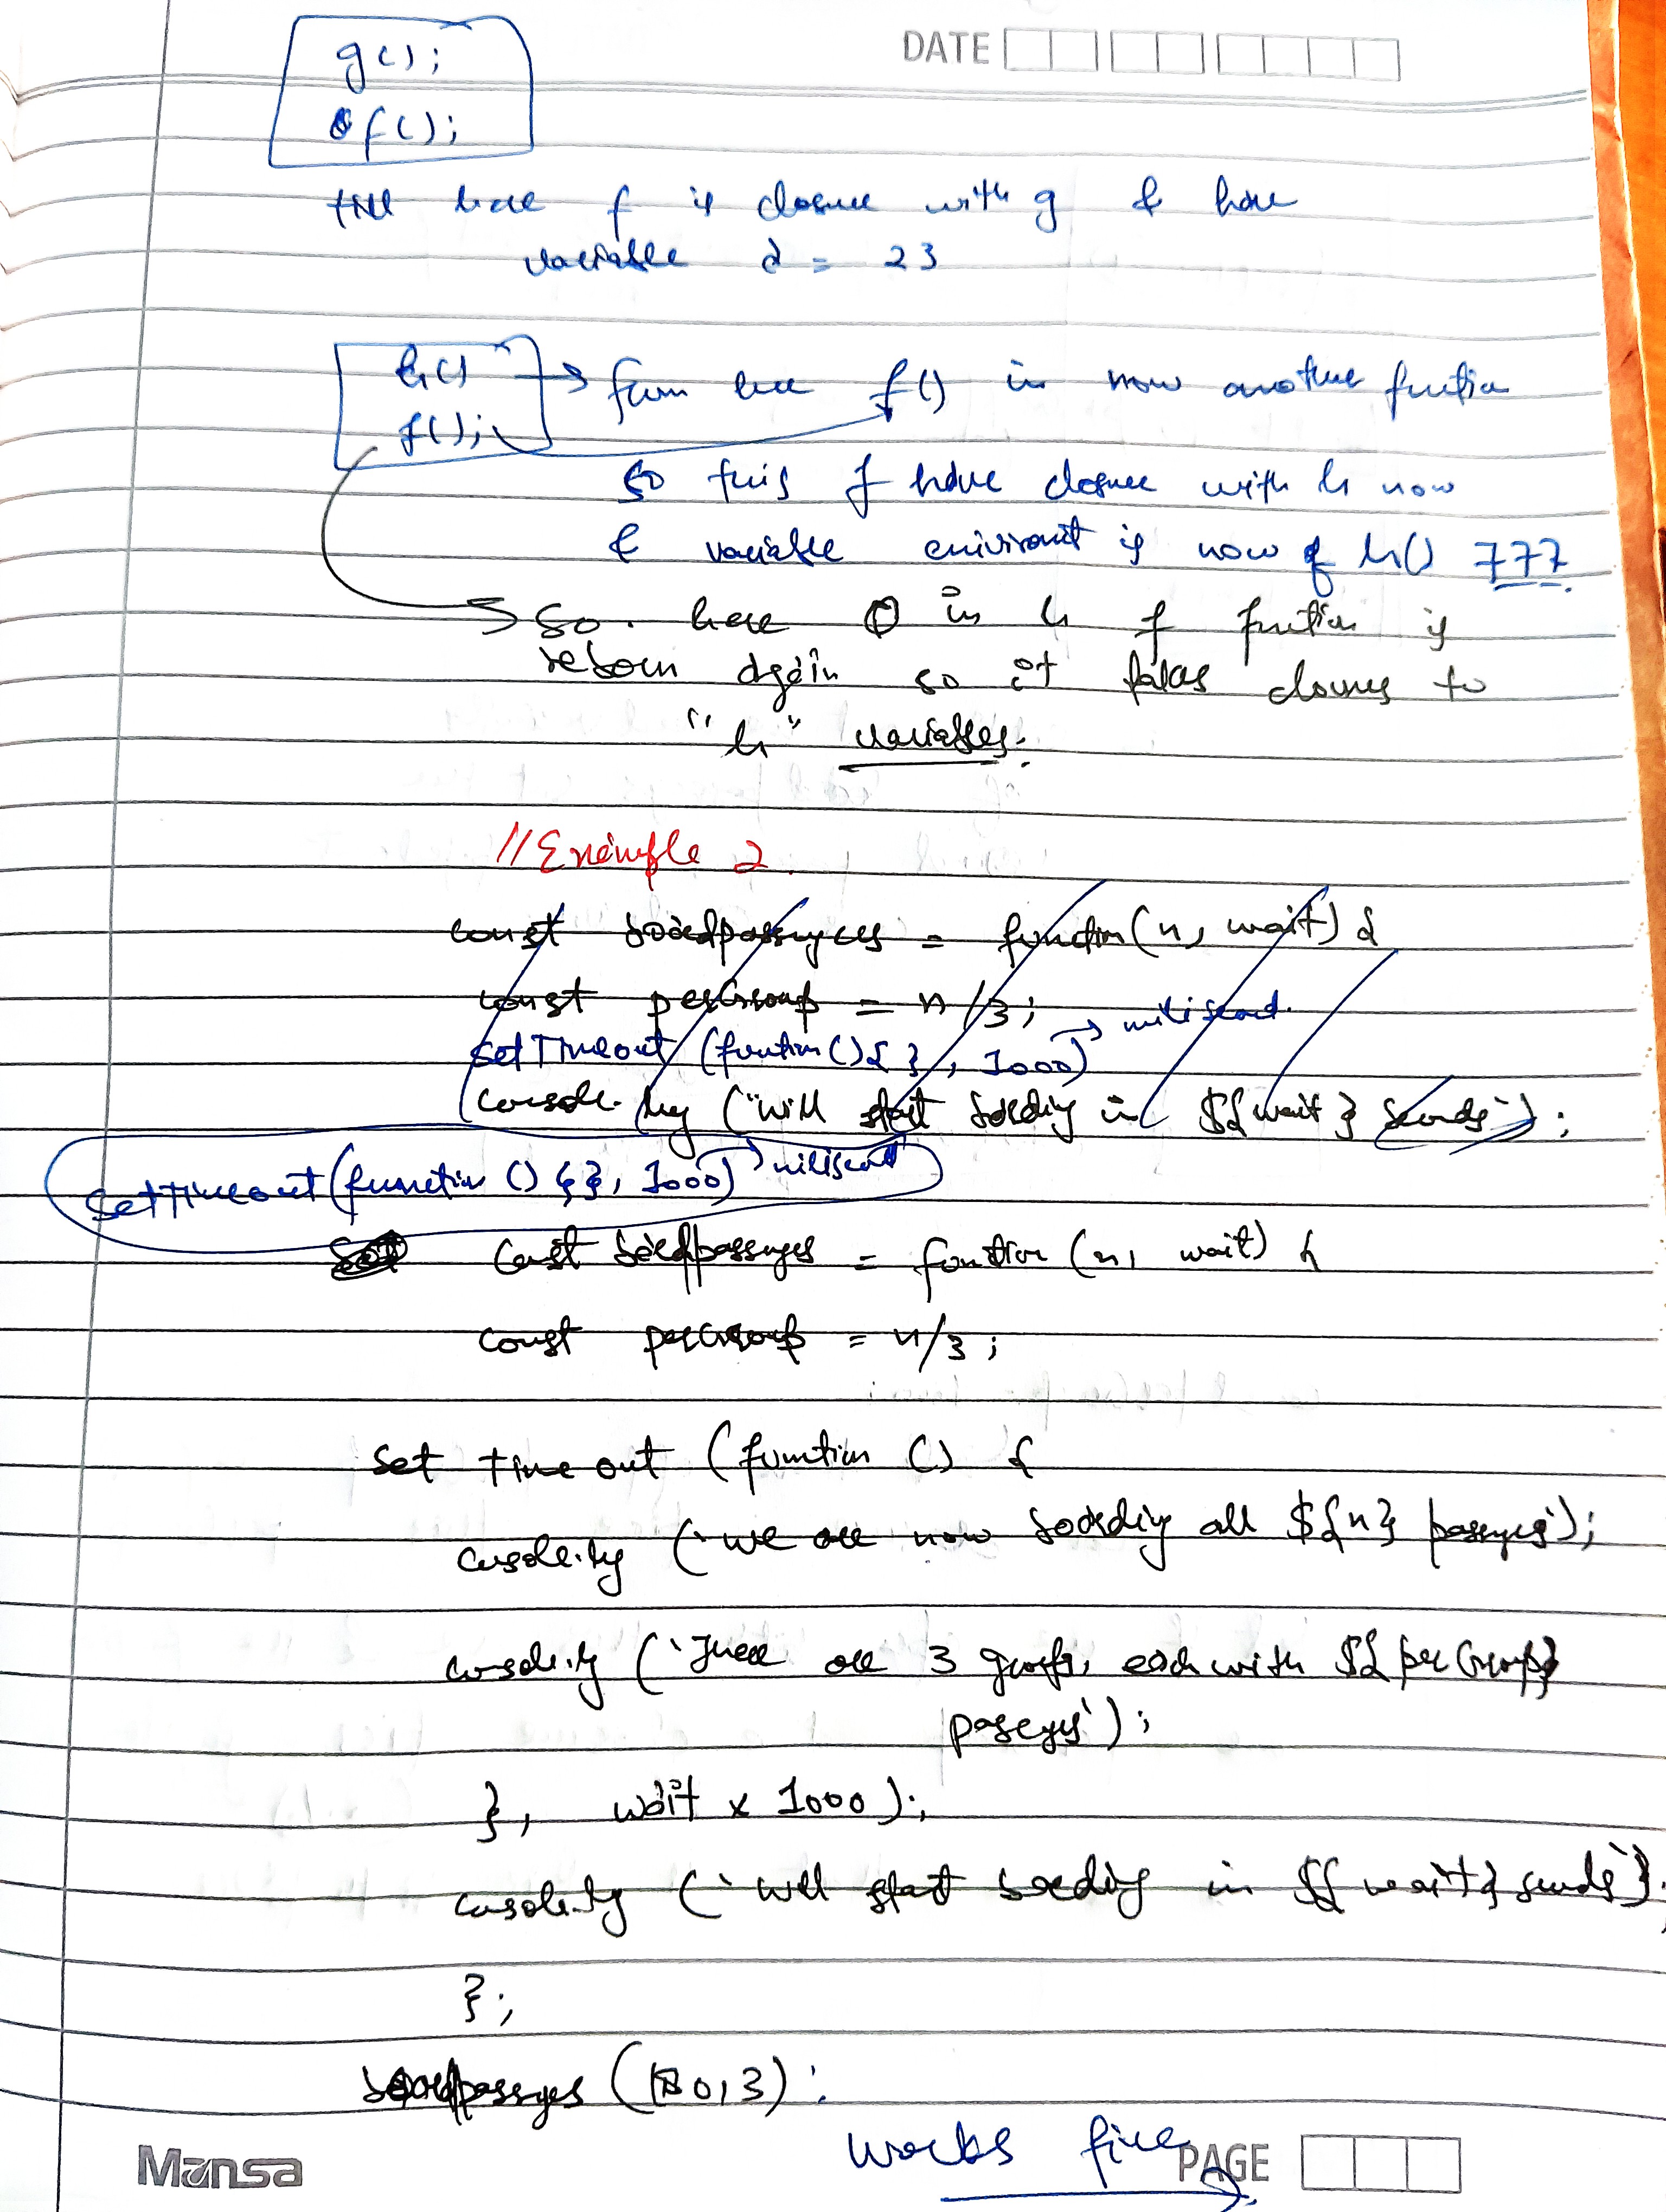 DATE
g();
f();
till here f is closure with g & have
variable a = 23
h()
f();
→ from here f() is now another function
so this f have closure with h now
& variable enivironmt is now of h() 777.
→ so. here in h f function is
reborn again so it takes closures to
"h" variables.
//Example 2.
const boardpassengers = function(n, wait) {
const perGroup = n/3;
setTimeout (function(){ }, 1000) → milisecond.
console.log ("Will start boarding in ${wait} seconds`);
setTimeout(function () {}, 1000) → milisecond
const boardpassenges = function (n, wait) {
const perGroup = n/3;
set time out (function () {
console.log (`we are now boarding all ${n} passengers`);
console.log (`There are 3 groups, each with ${perGroup}
passengers`);
}, wait x 1000);
console.log (`will start boarding in ${wait} seconds`);
};
boardpassenges (180, 3);
works fine
Mansa
PAGE